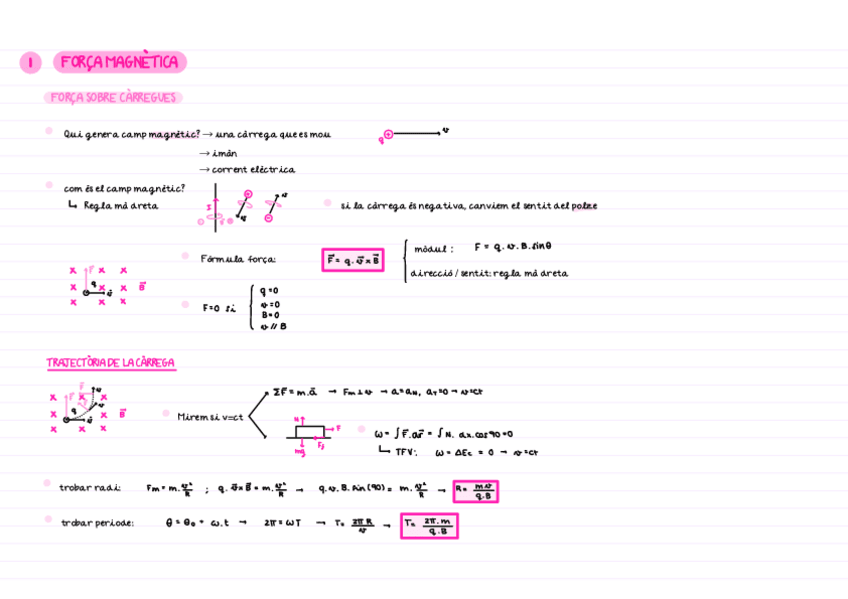 1 FORÇA MAGNÈTICA
FORÇA SOBRE CÀRREGUES
Qui genera camp magnètic? → una càrrega que es mou
q ⊕ v
→ imán
→ corrent elèctrica
com és el camp magnètic?
↳ Regla mà dreta
I
v
v
si la càrrega és negativa, canviem el sentit del polze
Fórmula força:
F⃗ = q. v⃗ × B⃗
mòdul: F = q. v. B. sinθ
direcció/sentit: regla mà dreta
x F x x
x q x x B⃗
v⃗
x x x
F=0 si
q=0
v=0
B=0
v // B
TRAJECTÒRIA DE LA CÀRREGA
Mirem si v=ct
ΣF⃗ = m.a⃗ → Fm ⊥ v → a=aN, aT=0 → v=ct
N
F
Ff
mg
ω = ∫ F⃗.dr⃗ = ∫ N. dx. cos 90 = 0
↳ TFV: ω = ΔEc = 0 → v=ct
trobar radi: Fm = m. v²/R ; q. v⃗ × B⃗ = m. v²/R → q. v. B. sin(90) = m. v²/R → R = mv/q.B
trobar període: θ = θ₀ + ω.t → 2π = ωT → T = 2πR/v → T = 2π.m/q.B